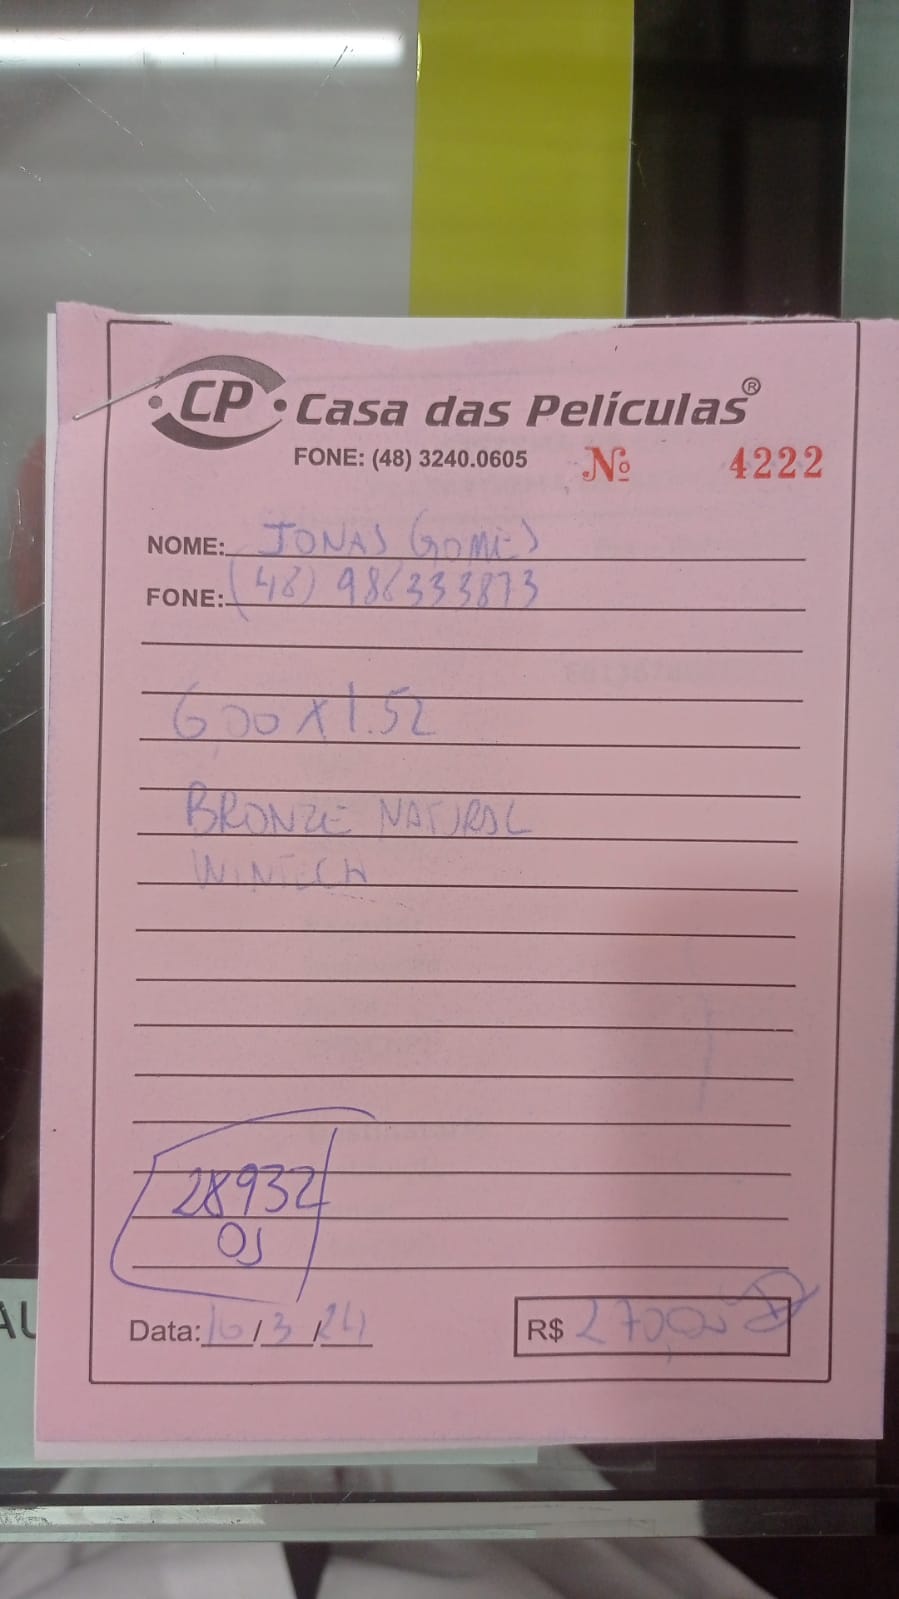 CP Casa das Películas®
FONE: (48) 3240.0605 Nº 4222
NOME: JONAS GOMES
FONE: (48) 986333873
6,00 X 1.52
BRONZE NATURAL
WINTECH
28932
OS
Data: 16/3/24 R$ 270,00
AU